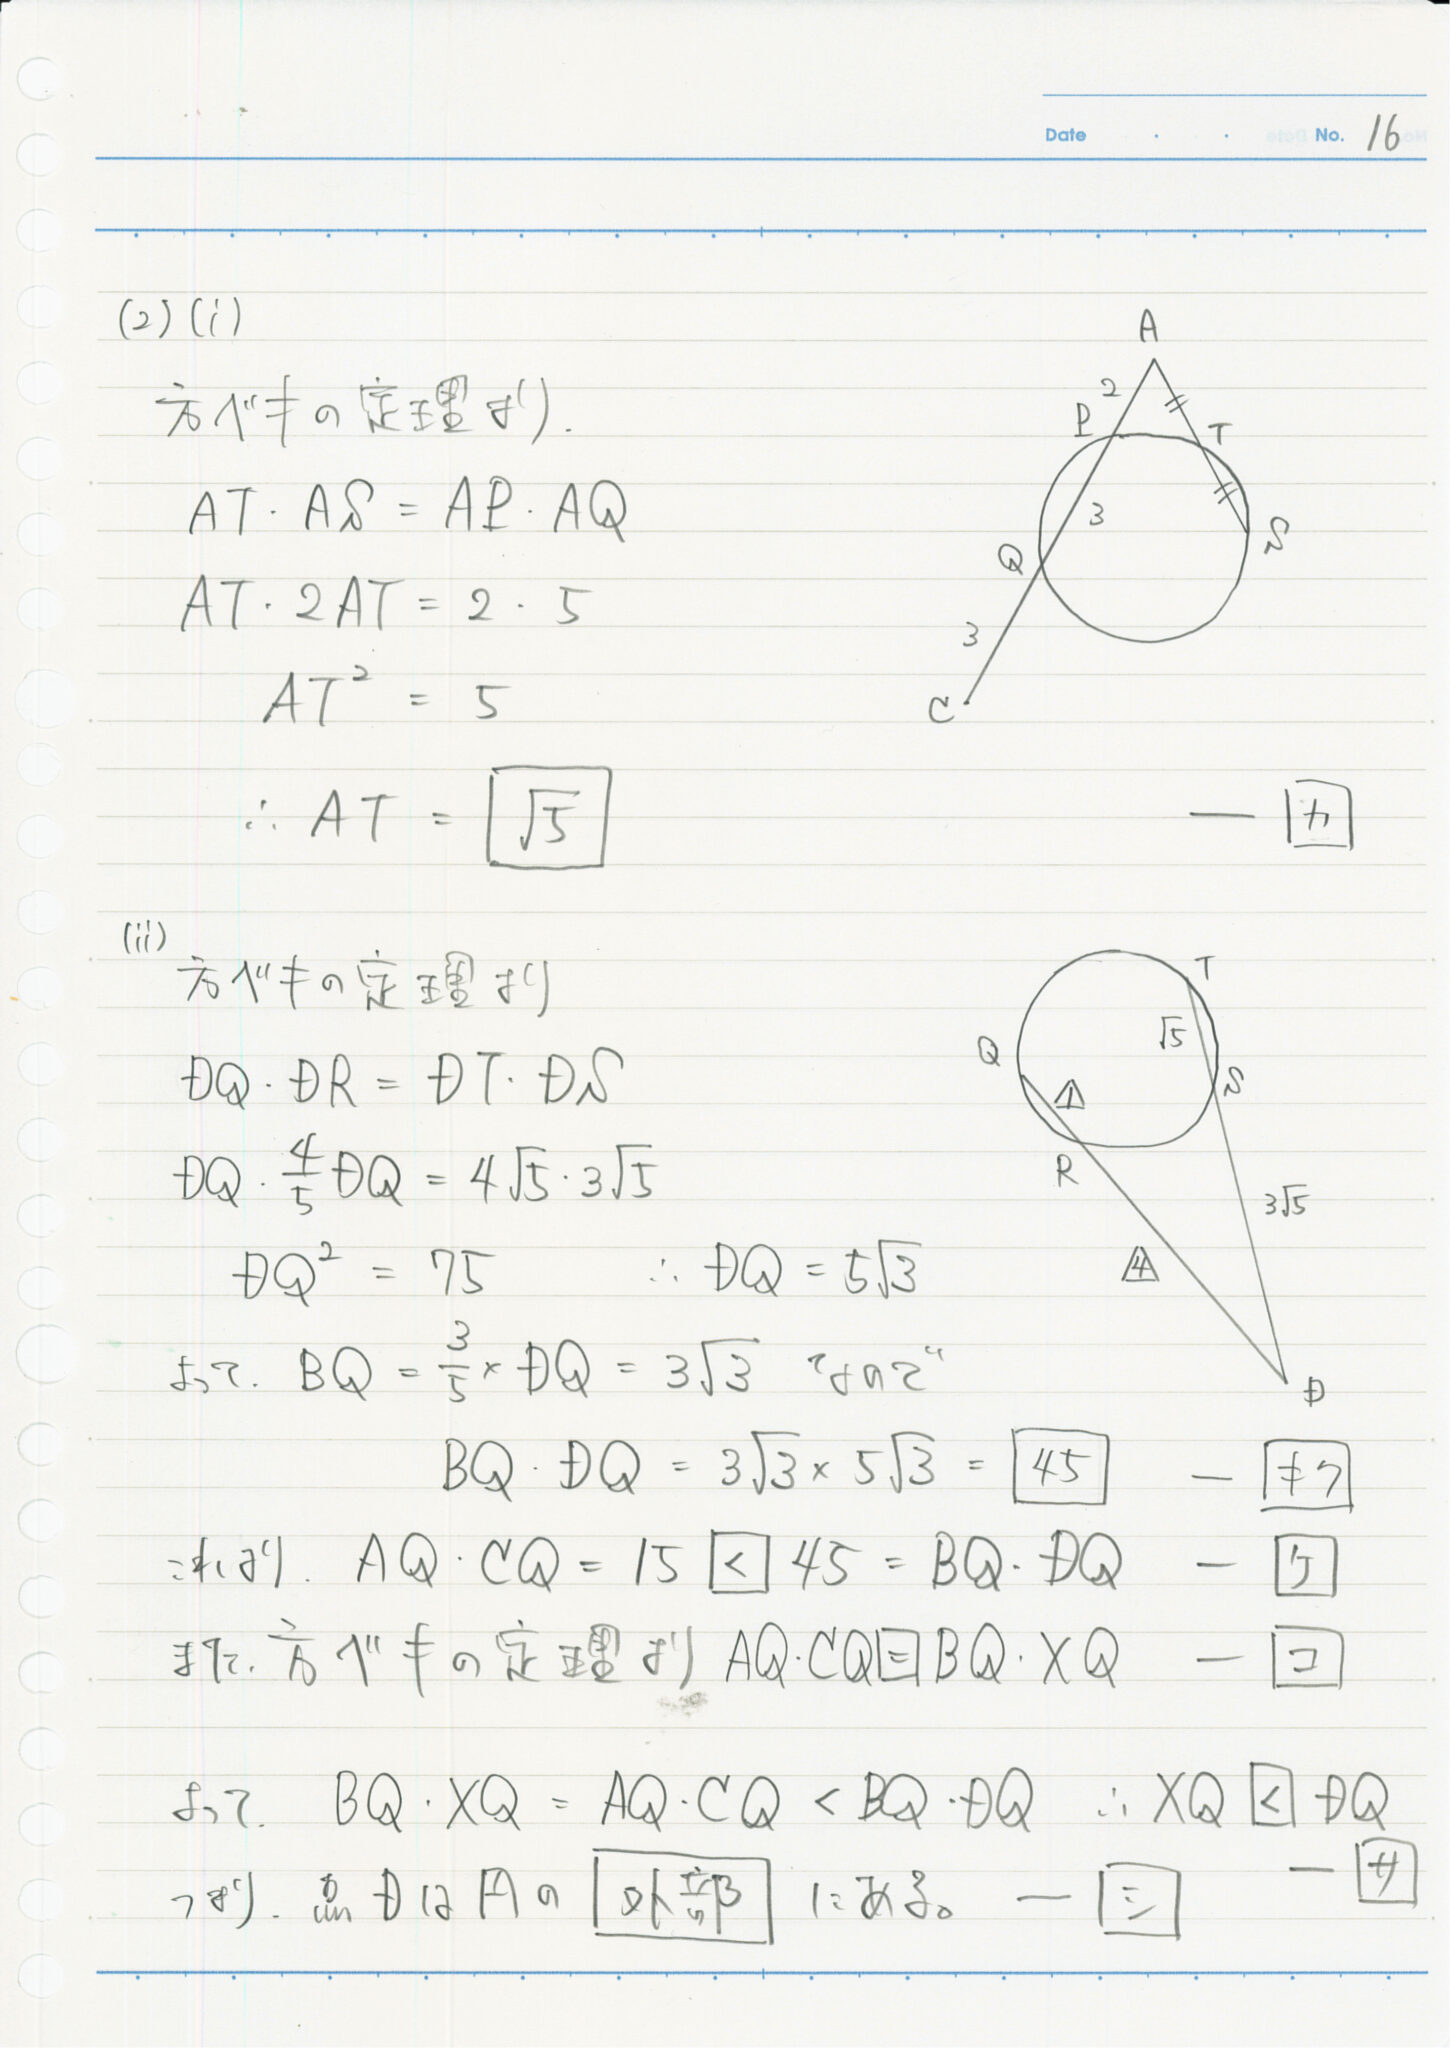 Date
No. 16
(2) (i)
方べキの定理より.
AT・AS = AP・AQ
AT・2AT = 2・5
AT² = 5
∴ AT = √5
— カ
A
2
P
T
3
Q
S
3
C
(ii)
方べキの定理より
DQ・DR = DT・DS
DQ・4/5 DQ = 4√5・3√5
DQ² = 75 ∴ DQ = 5√3
よって. BQ = 3/5 × DQ = 3√3 なので
BQ・DQ = 3√3 × 5√3 = 45 — キク
T
√5
Q
1
S
R
3√5
4
D
これより. AQ・CQ = 15 < 45 = BQ・DQ — ケ
また、方べキの定理より AQ・CQ = BQ・XQ — コ
よって. BQ・XQ = AQ・CQ < BQ・DQ ∴ XQ < DQ
— サ
つまり. 点Dは円の 外部 にある。 — シ